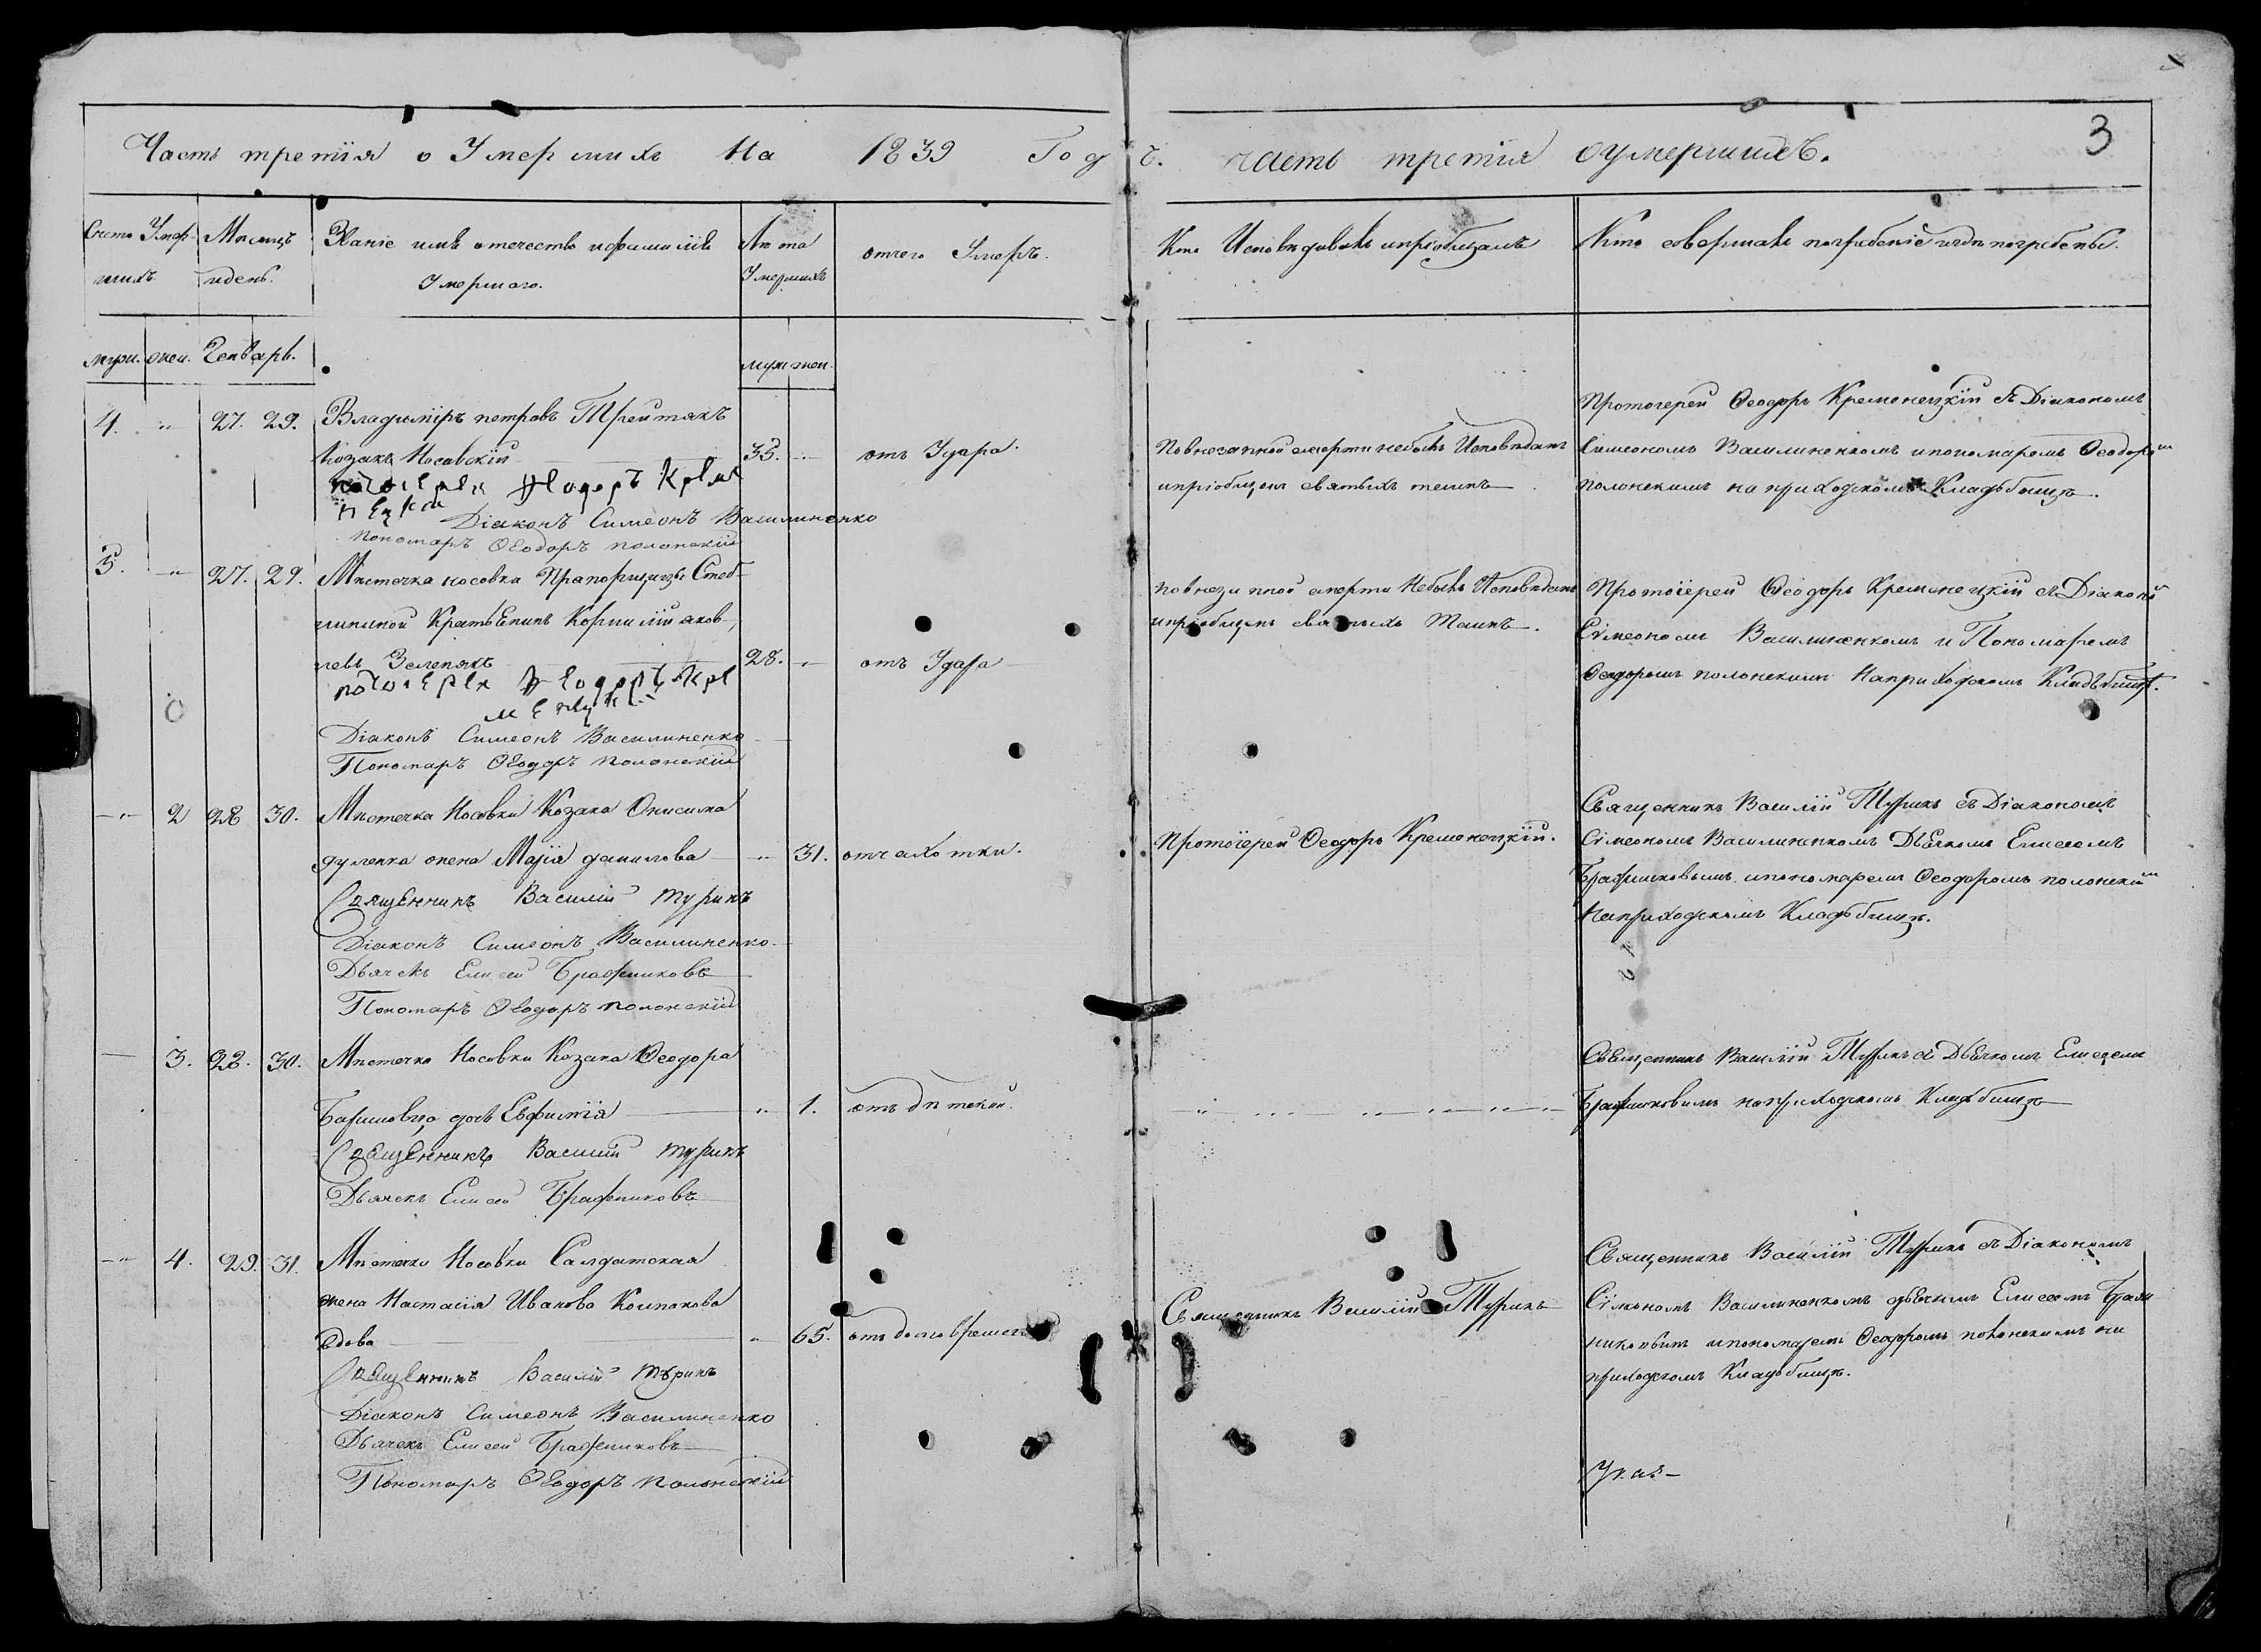 Часть третїя о Умершихъ На 1839 Годъ. часть третїя оумершихъ.
3
Счетъ Умер-
шихъ.
Мѣсяцъ
идень.
Званіе имя отечество ифамилія
Умершаго.
Лѣта
Умершихъ
отчего Умеръ.
Кто Исповѣдовалъ ипріобщалъ
Кто совершалъ погребеніе игдѣ погребены.
муж. жен. Генварь.
муж жен.
4. " 27. 29. Владимїръ петровъ Третякъ
Козакъ Носовскїй 35. " отъ Удара.
протоіерей Ѳеодоръ Креме
нецкій
Діаконъ Симеонъ Василиненко
Пономаръ Ѳеодоръ полонскій
Повнезапной смерти небылъ Исповѣданъ
ипріобщенъ святыхъ таинъ
Протоіерей Ѳеодоръ Кременецкїй съ Діакономъ
Симеономъ Василиненкомъ ипономаромъ Ѳеодоромъ
полонскимъ на приходскомъ Кладьбищѣ.
5. " 27. 29. Мѣстечка носовки Прапорщицы
Крестьенинъ Корнилій яков-
левъ Зеленякъ 28. " отъ Удара
протоіерей Ѳеодоръ Кре
менецкій
Діаконъ Симеонъ Василиненко
Пономаръ Ѳеодоръ полонскій
повнезапной смерти Небылъ Исповѣданъ
ипріобщенъ святыхъ Таинъ.
Протоїерей Ѳеодоръ Кременецкїй съ Діакономъ
Сімеономъ Василиненкомъ и Пономаремъ
Ѳеодоромъ полонскимъ Наприходскомъ Кладьбищѣ.
" 2 28 30. Мѣстечка Носовки Козака Онисима
дуленка жена Марія данилова " 31. отчахотки.
Священникъ Василій Турикъ
Діаконъ Симеонъ Василиненко
Дьячекъ Елисей Бражниковъ
Пономаръ Ѳеодоръ полонскій
Протоїерей Ѳеодоръ Кременецкїй.
Священникъ Василїй Турикъ съ Діакономъ
Сімеономъ Василиненкомъ Дьячкомъ Елисеемъ
Бражниковымъ ипономаремъ Ѳеодоромъ полонскимъ
Наприходскомъ Кладьбищѣ.
3. 28. 30. Мѣстечка Носовки Козака Ѳеодора
дочь Евфимїя " 1. отъ дѣтской.
Священникъ Василій Турикъ
Дьячекъ Елисей Бражниковъ
Священникъ Василїй Турикъ съ Дьячкомъ Елисеемъ
Бражниковимъ наприходскомъ Кладьбищѣ
" 4. 29. 31. Мѣстечка Носовки Салдатская
жена Настасїя Иванова
вдова " 65.
Священникъ Василій Турикъ
Діаконъ Симеонъ Василиненко
Дьячекъ Елисей Бражниковъ
Пономаръ Ѳеодоръ полонскій
Священникъ Василїй Турикъ
Священникъ Василїй Турикъ съ Діакономъ
Сімеономъ Василиненкомъ дьячкомъ Елисеемъ Браж
никовымъ ипономаремъ Ѳеодоромъ полонскимъ на
приходскомъ Кладьбищѣ.